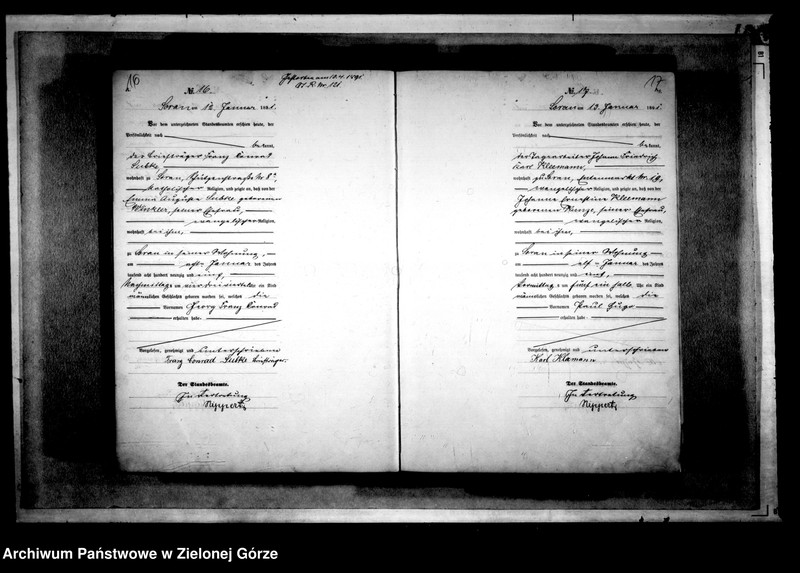 16
Nr. 16.
Sorau am 12. Januar 1891.
Vor dem unterzeichneten Standesbeamten erschien heute, der
Persönlichkeit nach
bekannt,
der Briefträger Franz Conrad
wohnhaft zu Sorau,
katholischer Religion, und zeigte an, daß von der
Emma Auguste
geborenen
seiner Ehefrau,
evangelischer Religion,
wohnhaft bei ihm,
zu Sorau in seiner Wohnung,
am Januar des Jahres
tausend acht hundert neunzig und eins,
Nachmittags um Uhr ein Kind
männlichen Geschlechts geboren worden sei, welches die
Vornamen Georg Franz Conrad
erhalten habe.
Vorgelesen, genehmigt und unterschrieben
Franz Conrad Briefträger.
Der Standesbeamte.
In Vertretung
Nippert
17
Nr. 17.
Sorau am 13. Januar 1891.
Vor dem unterzeichneten Standesbeamten erschien heute, der
Persönlichkeit nach
bekannt,
der Tagearbeiter Johann Friedrich
Karl Kleemann,
wohnhaft zu Sorau,
evangelischer Religion, und zeigte an, daß von der
Johanne Ernestine Kleemann
geborenen Kunze, seiner Ehefrau,
evangelischer Religion,
wohnhaft bei ihm,
zu Sorau in seiner Wohnung
am elf Januar des Jahres
tausend acht hundert neunzig und eins,
Vormittags um fünf ein halb Uhr ein Kind
männlichen Geschlechts geboren worden sei, welches die
Vornamen Paul Hugo
erhalten habe.
Vorgelesen, genehmigt und unterschrieben
Karl Klamann
Der Standesbeamte.
In Vertretung
Nippert
Archiwum Państwowe w Zielonej Górze